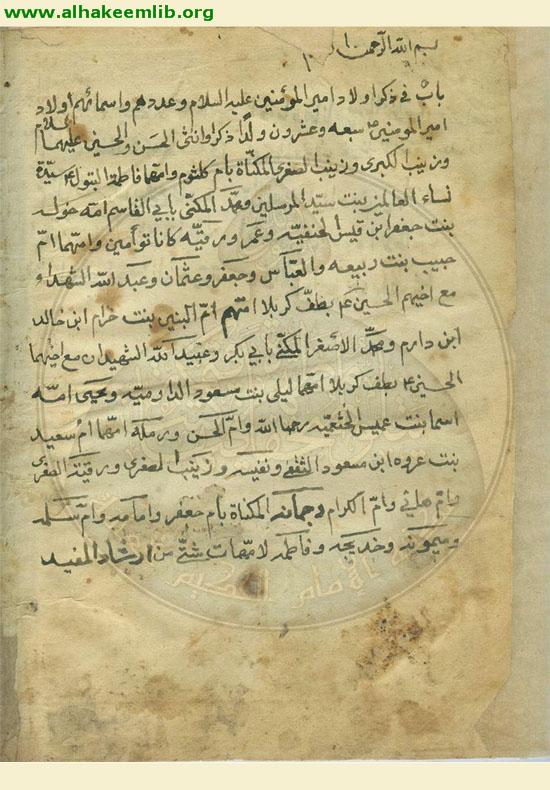 www.alhakeemlib.org
بسم الله الرحمن
باب في ذكر اولاد امير المؤمنين عليه السلام وعددهم واسمائهم اولاد
امير المؤمنين سبعه وعشرون ولدا ذكرا وانثى الحسن والحسين عليهما السلام
وزينب الكبرى وزينب الصغرى المكناة بام كلثوم وامهما فاطمة البتول سيدة
نساء العالمين بنت سيد المرسلين ومحمد المكنى بابي القاسم امه خوله
بنت جعفر ابن قيس الحنفيه وعمر ورقيه كانا توأمين وامهما ام
حبيب بنت ربيعه والعباس وجعفر وعثمان وعبد الله الشهداء
مع اخيهم الحسين ع بطف كربلا امهم ام البنين بنت حزام ابن خالد
ابن دارم ومحمد الاصغر المكنى بابي بكر وعبيد الله الشهيدان مع اخيهما
الحسين ع بطف كربلا امهما ليلى بنت مسعود الدارميه ويحيى امه
اسما بنت عميس الخثعميه رحمها الله وام الحسن ورمله امهما ام سعيد
بنت عروه ابن مسعود الثقفي ونفيسه وزينب الصغرى ورقية الصغرى
وام هاني وام الكرام وجمانه المكناة بام جعفر وامامه وام سلمه
وميمونه وخديجه وفاطمه لامهات شتى من ارشاد المفيد